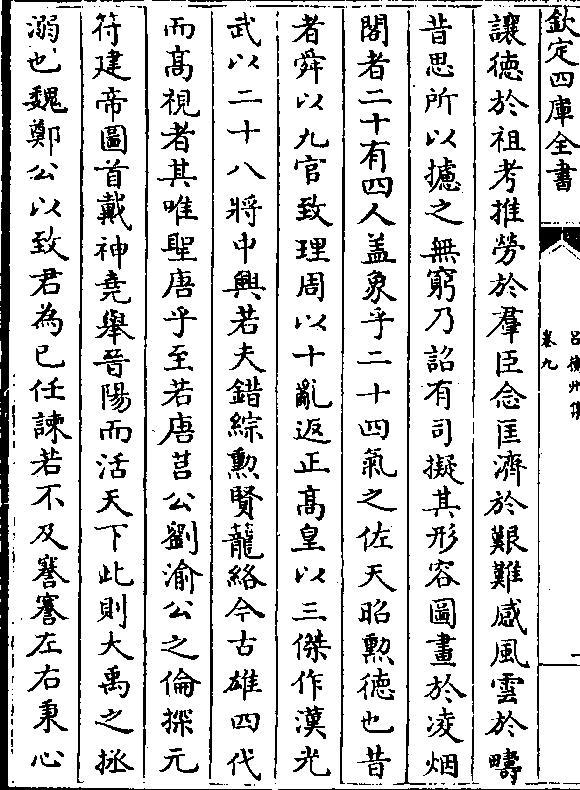 欽定四庫全書
吕衡州集
卷九
讓德於祖考推勞於羣臣念匡濟於艱難感風雲於疇
昔思所以攄之無窮乃詔有司擬其形容圖畫於凌烟
閣者二十有四人盖象乎二十四氣之佐天昭勲德也昔
者舜以九官致理周以十亂返正高皇以三傑作漢光
武以二十八將中興若夫錯綜勲賢蘢絡今古雄四代
而高視者其唯聖唐乎至若唐莒公劉渝公之倫探元
符建帝圖首戴神堯舉晉陽而活天下此則大禹之拯
溺也魏鄭公以致君為已任諫若不及謇謇左右秉心